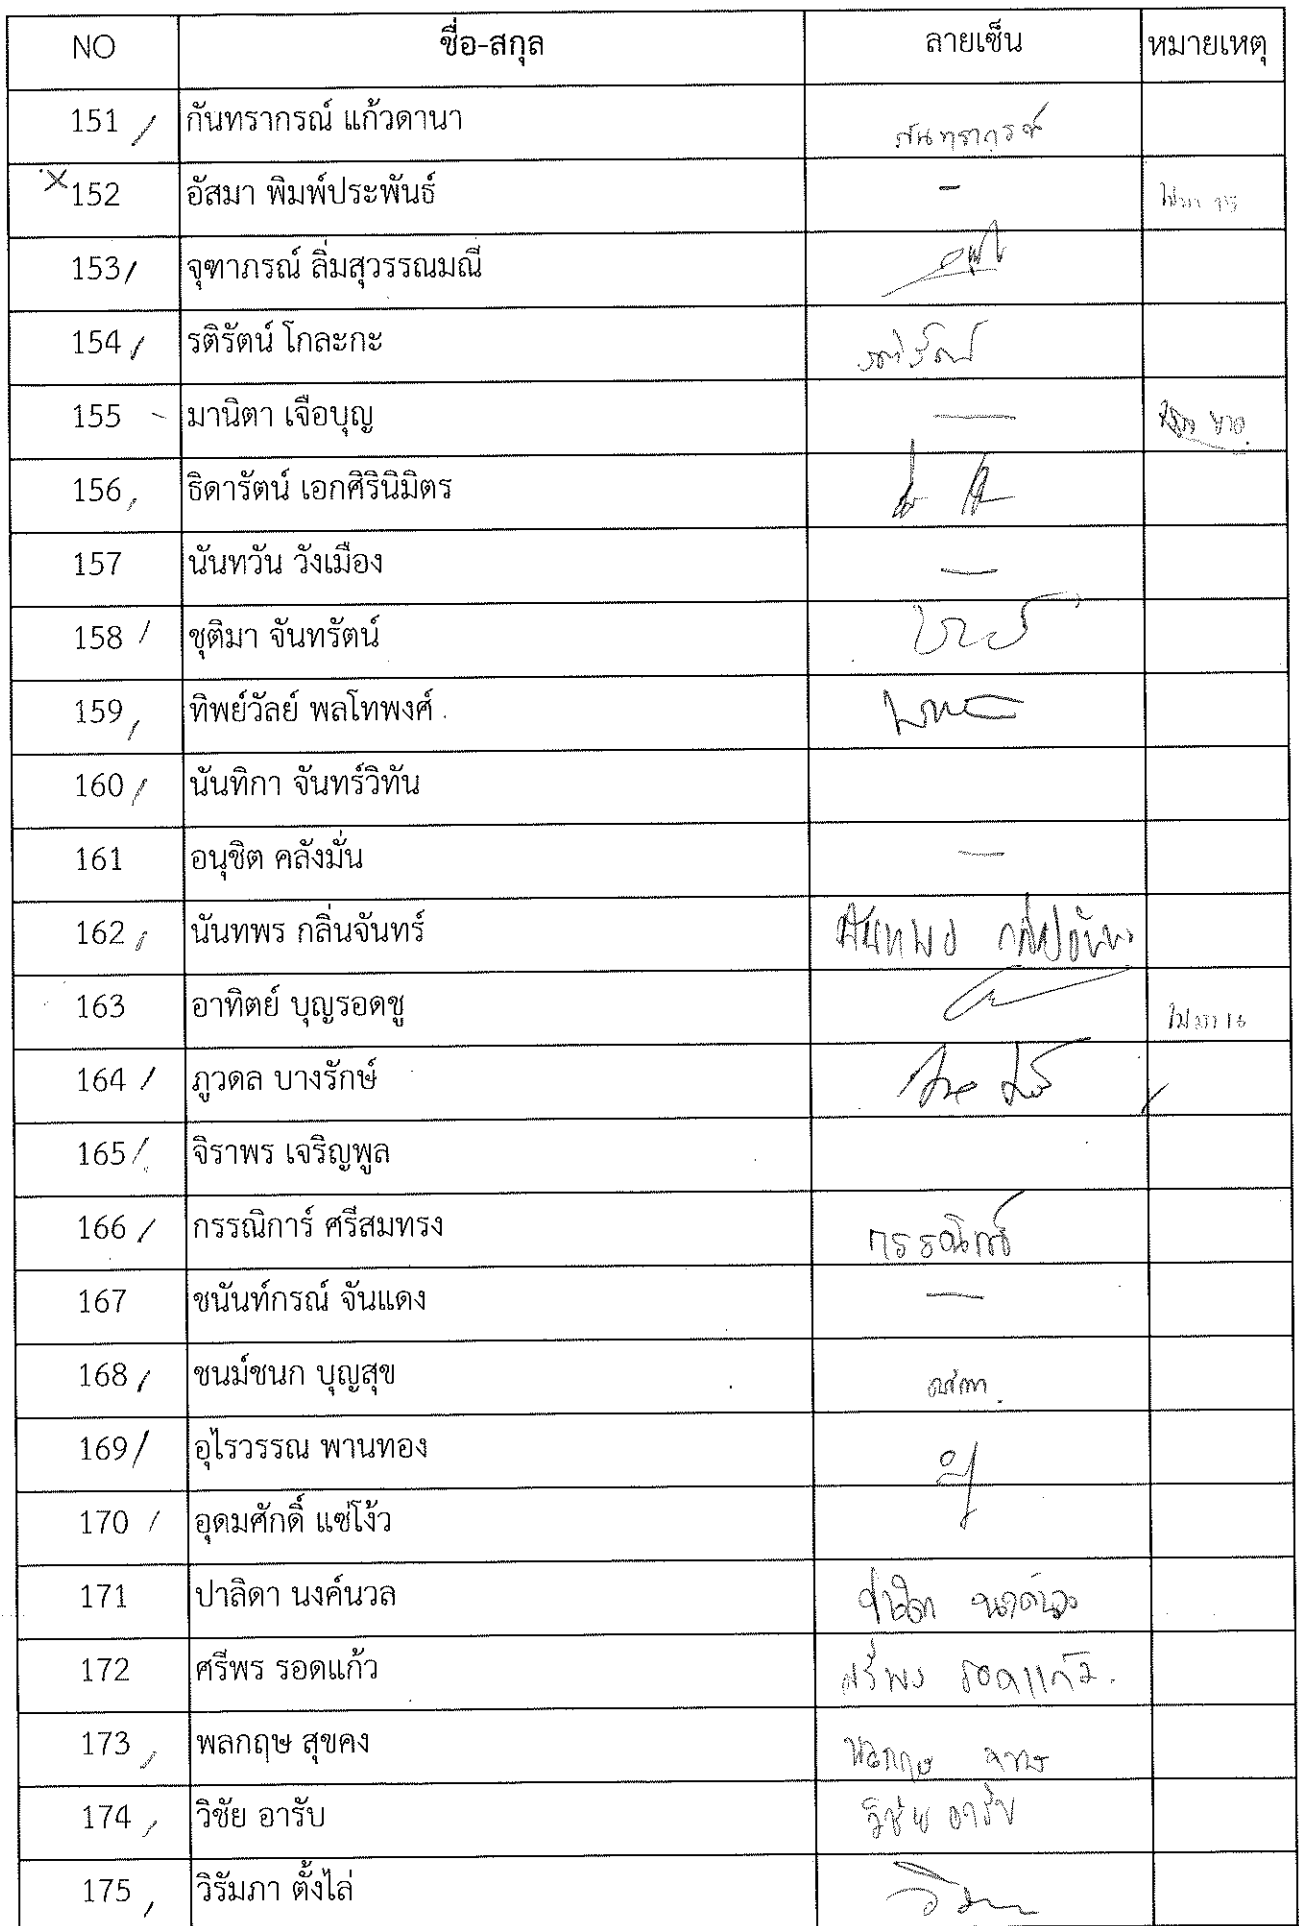 NO ชื่อ-สกุล ลายเซ็น หมายเหตุ
151 / กันทรากรณ์ แก้วดานา กันทรากรณ์
×152 อัสมา พิมพ์ประพันธ์ - ไม่มา
153 / จุฑาภรณ์ ลิ่มสุวรรณมณี
154 / รติรัตน์ โกละกะ รติรัตน์
155 - มานิตา เจือบุญ —
156 / ธิดารัตน์ เอกศิรินิมิตร
157 นันทวัน วังเมือง —
158 / ชุติมา จันทรัตน์
159 / ทิพย์วัลย์ พลโทพงศ์
160 / นันทิกา จันทร์วิทัน
161 อนุชิต คลังมั่น —
162 / นันทพร กลิ่นจันทร์ นันทพร กลิ่นจันทร์
163 อาทิตย์ บุญรอดชู ไม่มา 16
164 / ภูวดล บางรักษ์
165 / จิราพร เจริญพูล
166 / กรรณิการ์ ศรีสมทรง กรรณิการ์
167 ชนันท์กรณ์ จันแดง —
168 / ชนม์ชนก บุญสุข
169 / อุไรวรรณ พานทอง
170 / อุดมศักดิ์ แซ่โง้ว
171 ปาลิดา นงค์นวล ปาลิดา นงค์นวล
172 ศรีพร รอดแก้ว ศรีพร รอดแก้ว.
173 / พลกฤษ สุขคง พลกฤษ
174 / วิชัย อารับ วิชัย อารับ
175 / วิรัมภา ตั้งไล่